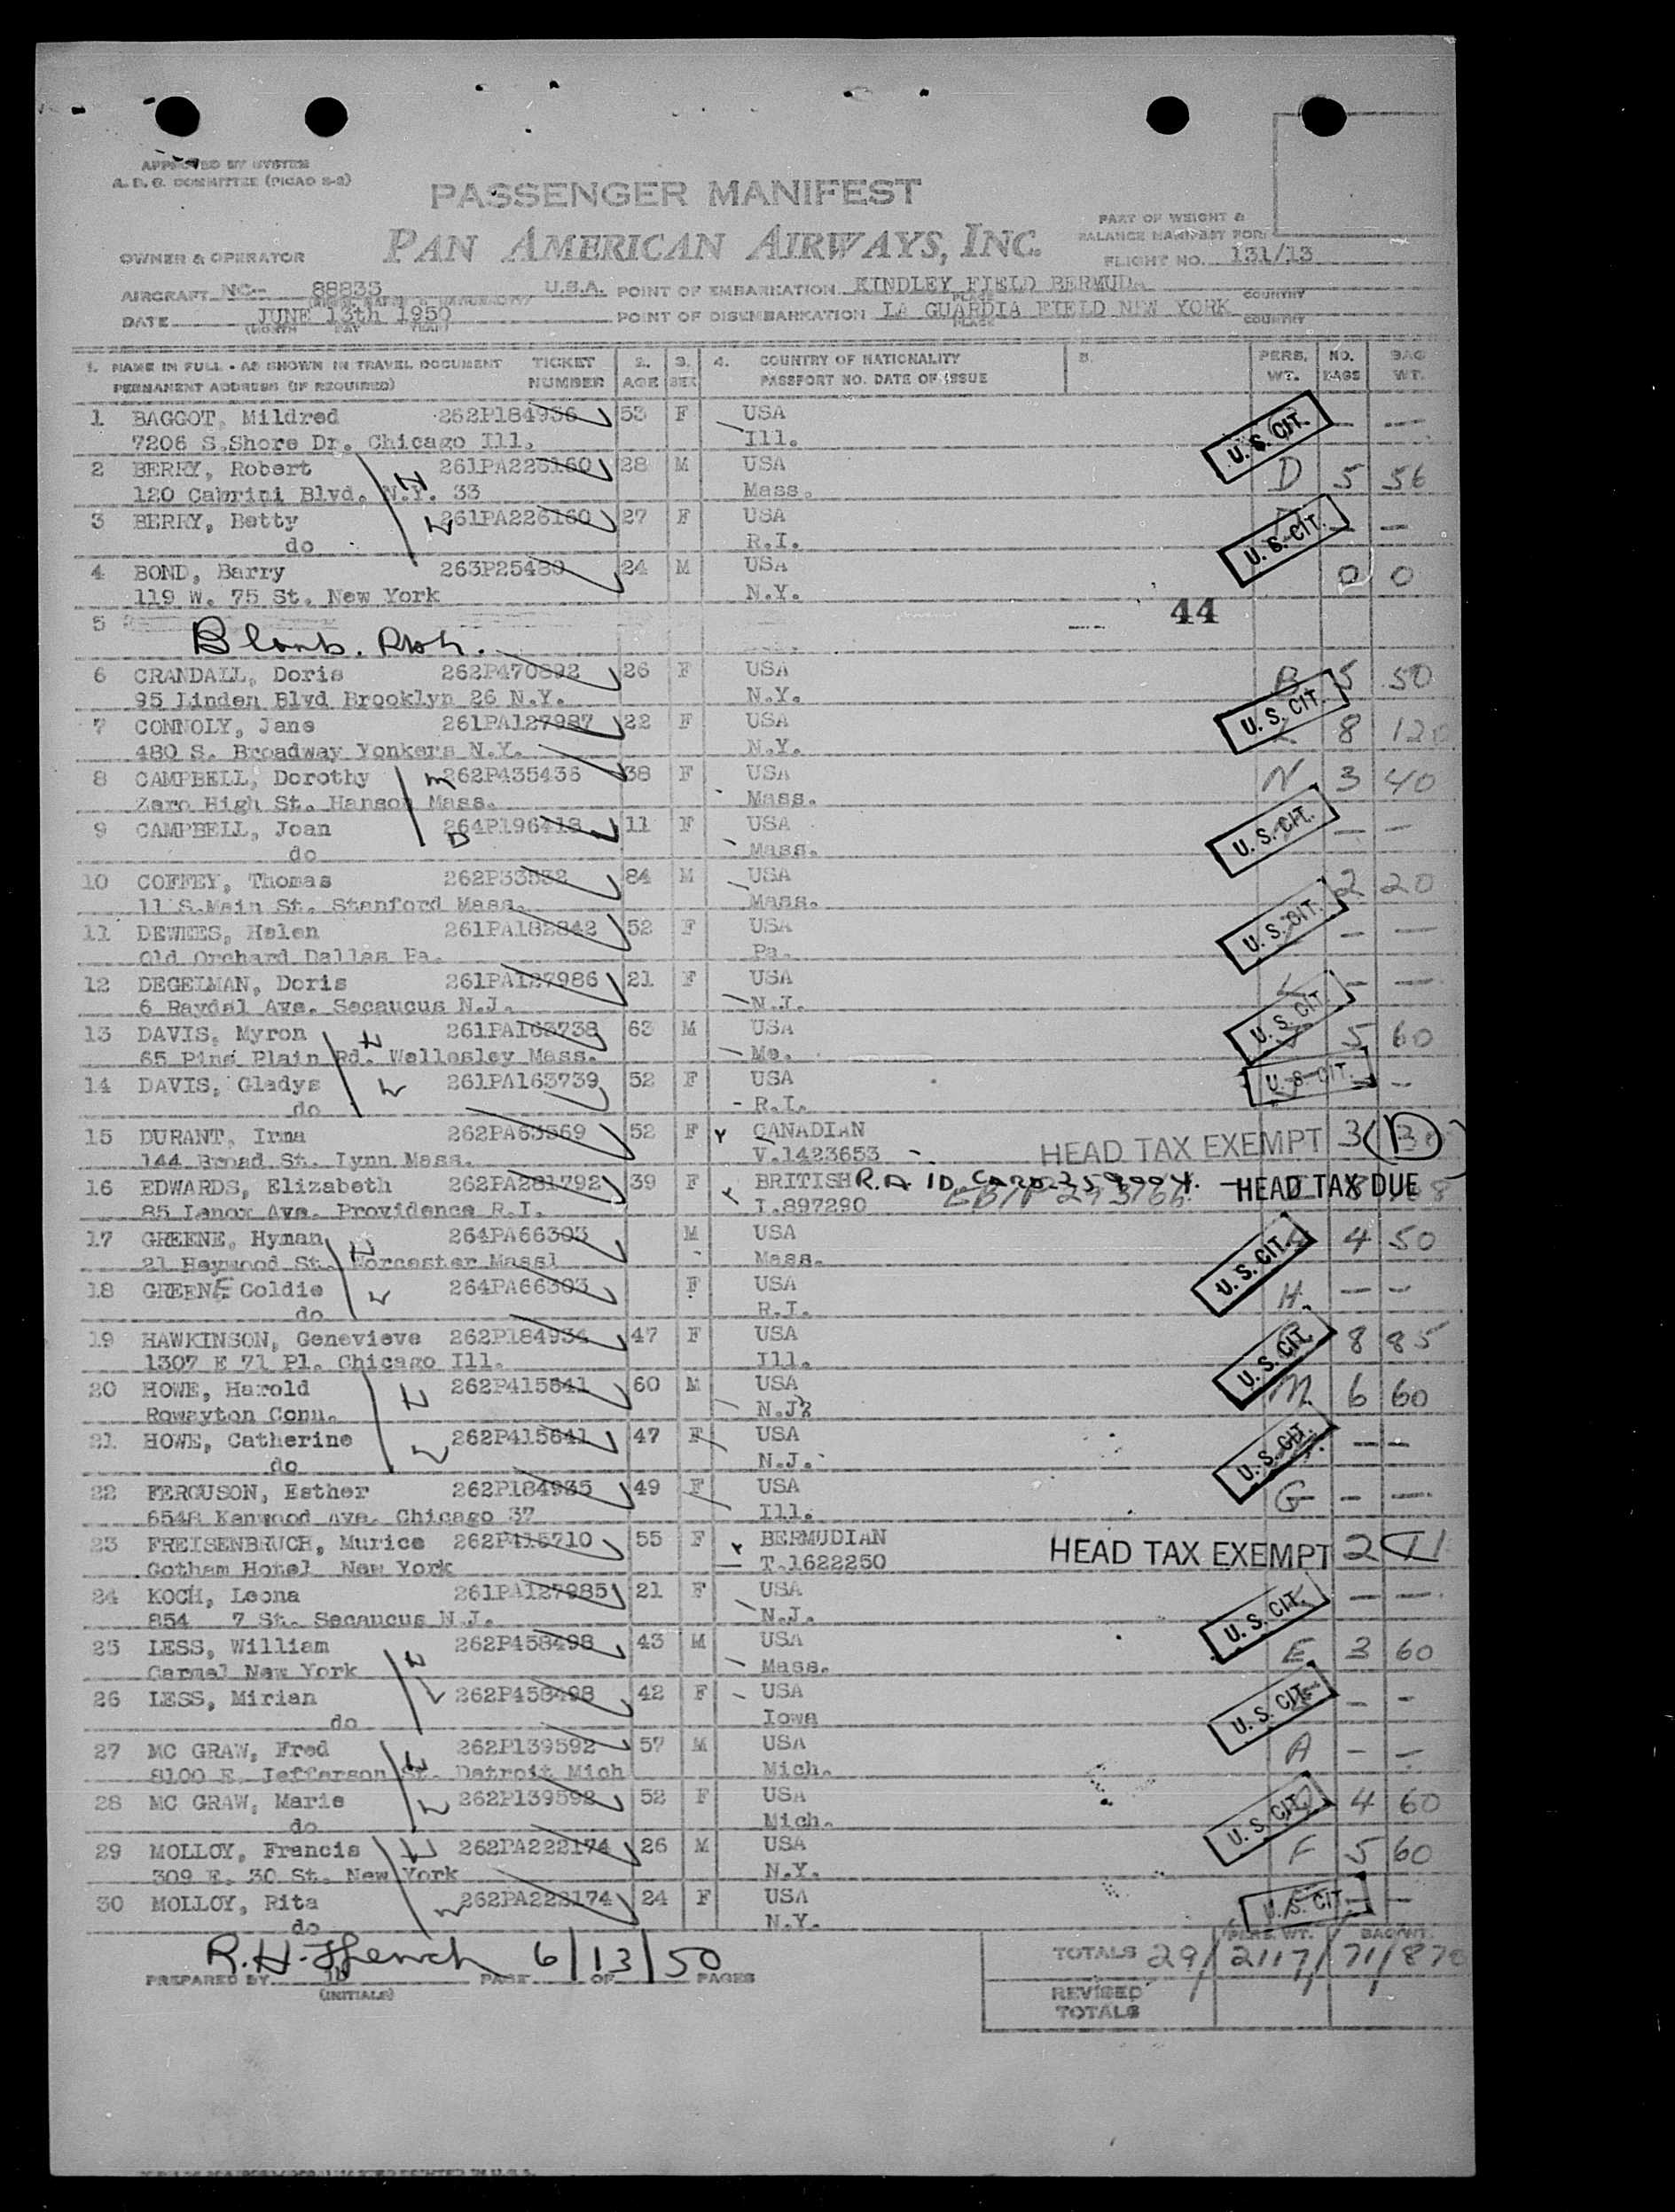 APPROVED BY SYSTEM
A. D. C. COMMITTEE (PICAO 2-2)
PASSENGER MANIFEST
PAN AMERICAN AIRWAYS, INC.
PART OF WEIGHT &
BALANCE MANIFEST FOR:
OWNER & OPERATOR
FLIGHT NO. 131/13
AIRCRAFT NC-- 88833 U.S.A. POINT OF EMBARKATION KINDLEY FIELD BERMUDA COUNTRY
PLACE
DATE JUNE 13th 1950 POINT OF DISEMBARKATION LA GUARDIA FIELD NEW YORK COUNTRY
(MONTH DAY YEAR) PLACE
1. NAME IN FULL - AS SHOWN IN TRAVEL DOCUMENT TICKET 2. 3. 4. COUNTRY OF NATIONALITY 5. PERS. NO. BAG
PERMANENT ADDRESS (IF REQUIRED) NUMBER AGE SEX PASSPORT NO. DATE OF ISSUE WT. BAGS WT.
1 BAGGOT, Mildred 262P184936 53 F USA U. S. CIT. — —
7206 S.Shore Dr. Chicago Ill. Ill.
2 BERRY, Robert 261PA226160 28 M USA D 5 56
120 Cabrini Blvd. N.Y. 33 H Mass.
3 BERRY, Betty W 261PA226160 27 F USA U. S. CIT. — —
do R.I.
4 BOND, Barry 263P25480 24 M USA 0 0
119 W. 75 St. New York N.Y.
5 44
Blank. RHH.
6 CRANDALL, Doris 262P470892 26 F USA B 5 50
95 Linden Blvd Brooklyn 26 N.Y. N.Y.
7 CONNOLY, Jane 261PA127987 22 F USA U. S. CIT. 8 120
480 S. Broadway Yonkers N.Y. N.Y.
8 CAMPBELL, Dorothy M 262P435436 38 F USA N 3 40
Zero High St. Hanson Mass. Mass.
9 CAMPBELL, Joan D 264P196418 11 F USA U. S. CIT. — —
do Mass.
10 COFFEY, Thomas 262P33532 84 M USA 2 20
11 S.Main St. Stanford Mass. Mass.
11 DEWEES, Helen 261PA182842 52 F USA U. S. CIT. — —
Old Orchard Dallas Pa. Pa.
12 DEGELMAN, Doris 261PA127986 21 F USA L — —
6 Raydal Ave. Secaucus N.J. N.J.
13 DAVIS, Myron H 261PA163738 63 M USA U. S. CIT. 5 60
65 Pine Plain Rd. Wellesley Mass. Me.
14 DAVIS, Gladys W 261PA163739 52 F USA U. S. CIT. — —
do - R.I.
15 DURANT, Irma 262PA63569 52 F CANADIAN HEAD TAX EXEMPT 3
144 Broad St. Lynn Mass. V.1423653
16 EDWARDS, Elizabeth 262PA281792 39 F BRITISH R.A ID CARD HEAD TAX DUE
85 Lenox Ave. Providence R.I. I.897290
17 GREENE, Hyman H 264PA66303 M USA U. S. CIT. 4 50
21 Heywood St. Worcester Massl Mass.
18 GREENE Goldie W 264PA66303 F USA H. — —
do R.I.
19 HAWKINSON, Genevieve 262P184934 47 F USA U. S. CIT. 8 85
1307 E 71 Pl. Chicago Ill. Ill.
20 HOWE, Harold H 262P415641 60 M USA M 6 60
Rowayton Conn. N.J?
21 HOWE, Catherine W 262P415641 47 F USA U. S. CIT. — —
do N.J.
22 FERGUSON, Esther 262P184935 49 F USA G — —
6548 Kenwood Ave. Chicago 37 Ill.
23 FREISENBRUCH, Murice 262P415710 55 F BERMUDIAN HEAD TAX EXEMPT 2
Gotham Hotel New York T.1622250
24 KOCH, Leona 261PA127985 21 F USA U. S. CIT. — —
854 7 St. Secaucus N.J. N.J.
25 LESS, William H 262P458498 43 M USA E 3 60
Carmel New York Mass.
26 LESS, Mirian W 262P458498 42 F USA U. S. CIT. — —
do Iowa
27 MC GRAW, Fred H 262P139592 57 M USA A — —
8100 E. Jefferson St. Detroit Mich Mich.
28 MC GRAW, Marie W 262P139592 52 F USA U. S. CIT. 4 60
do Mich.
29 MOLLOY, Francis H 262PA222174 26 M USA F 5 60
309 E. 30 St. New York N.Y.
30 MOLLOY, Rita W 262PA222174 24 F USA U. S. CIT. — —
do N.Y.
PERS. WT. BAG WT.
R.H. 6/13/50 TOTALS 29/ 2117/ 71/870
PREPARED BY PAGE OF PAGES
(INITIALS)
REVISED
TOTALS